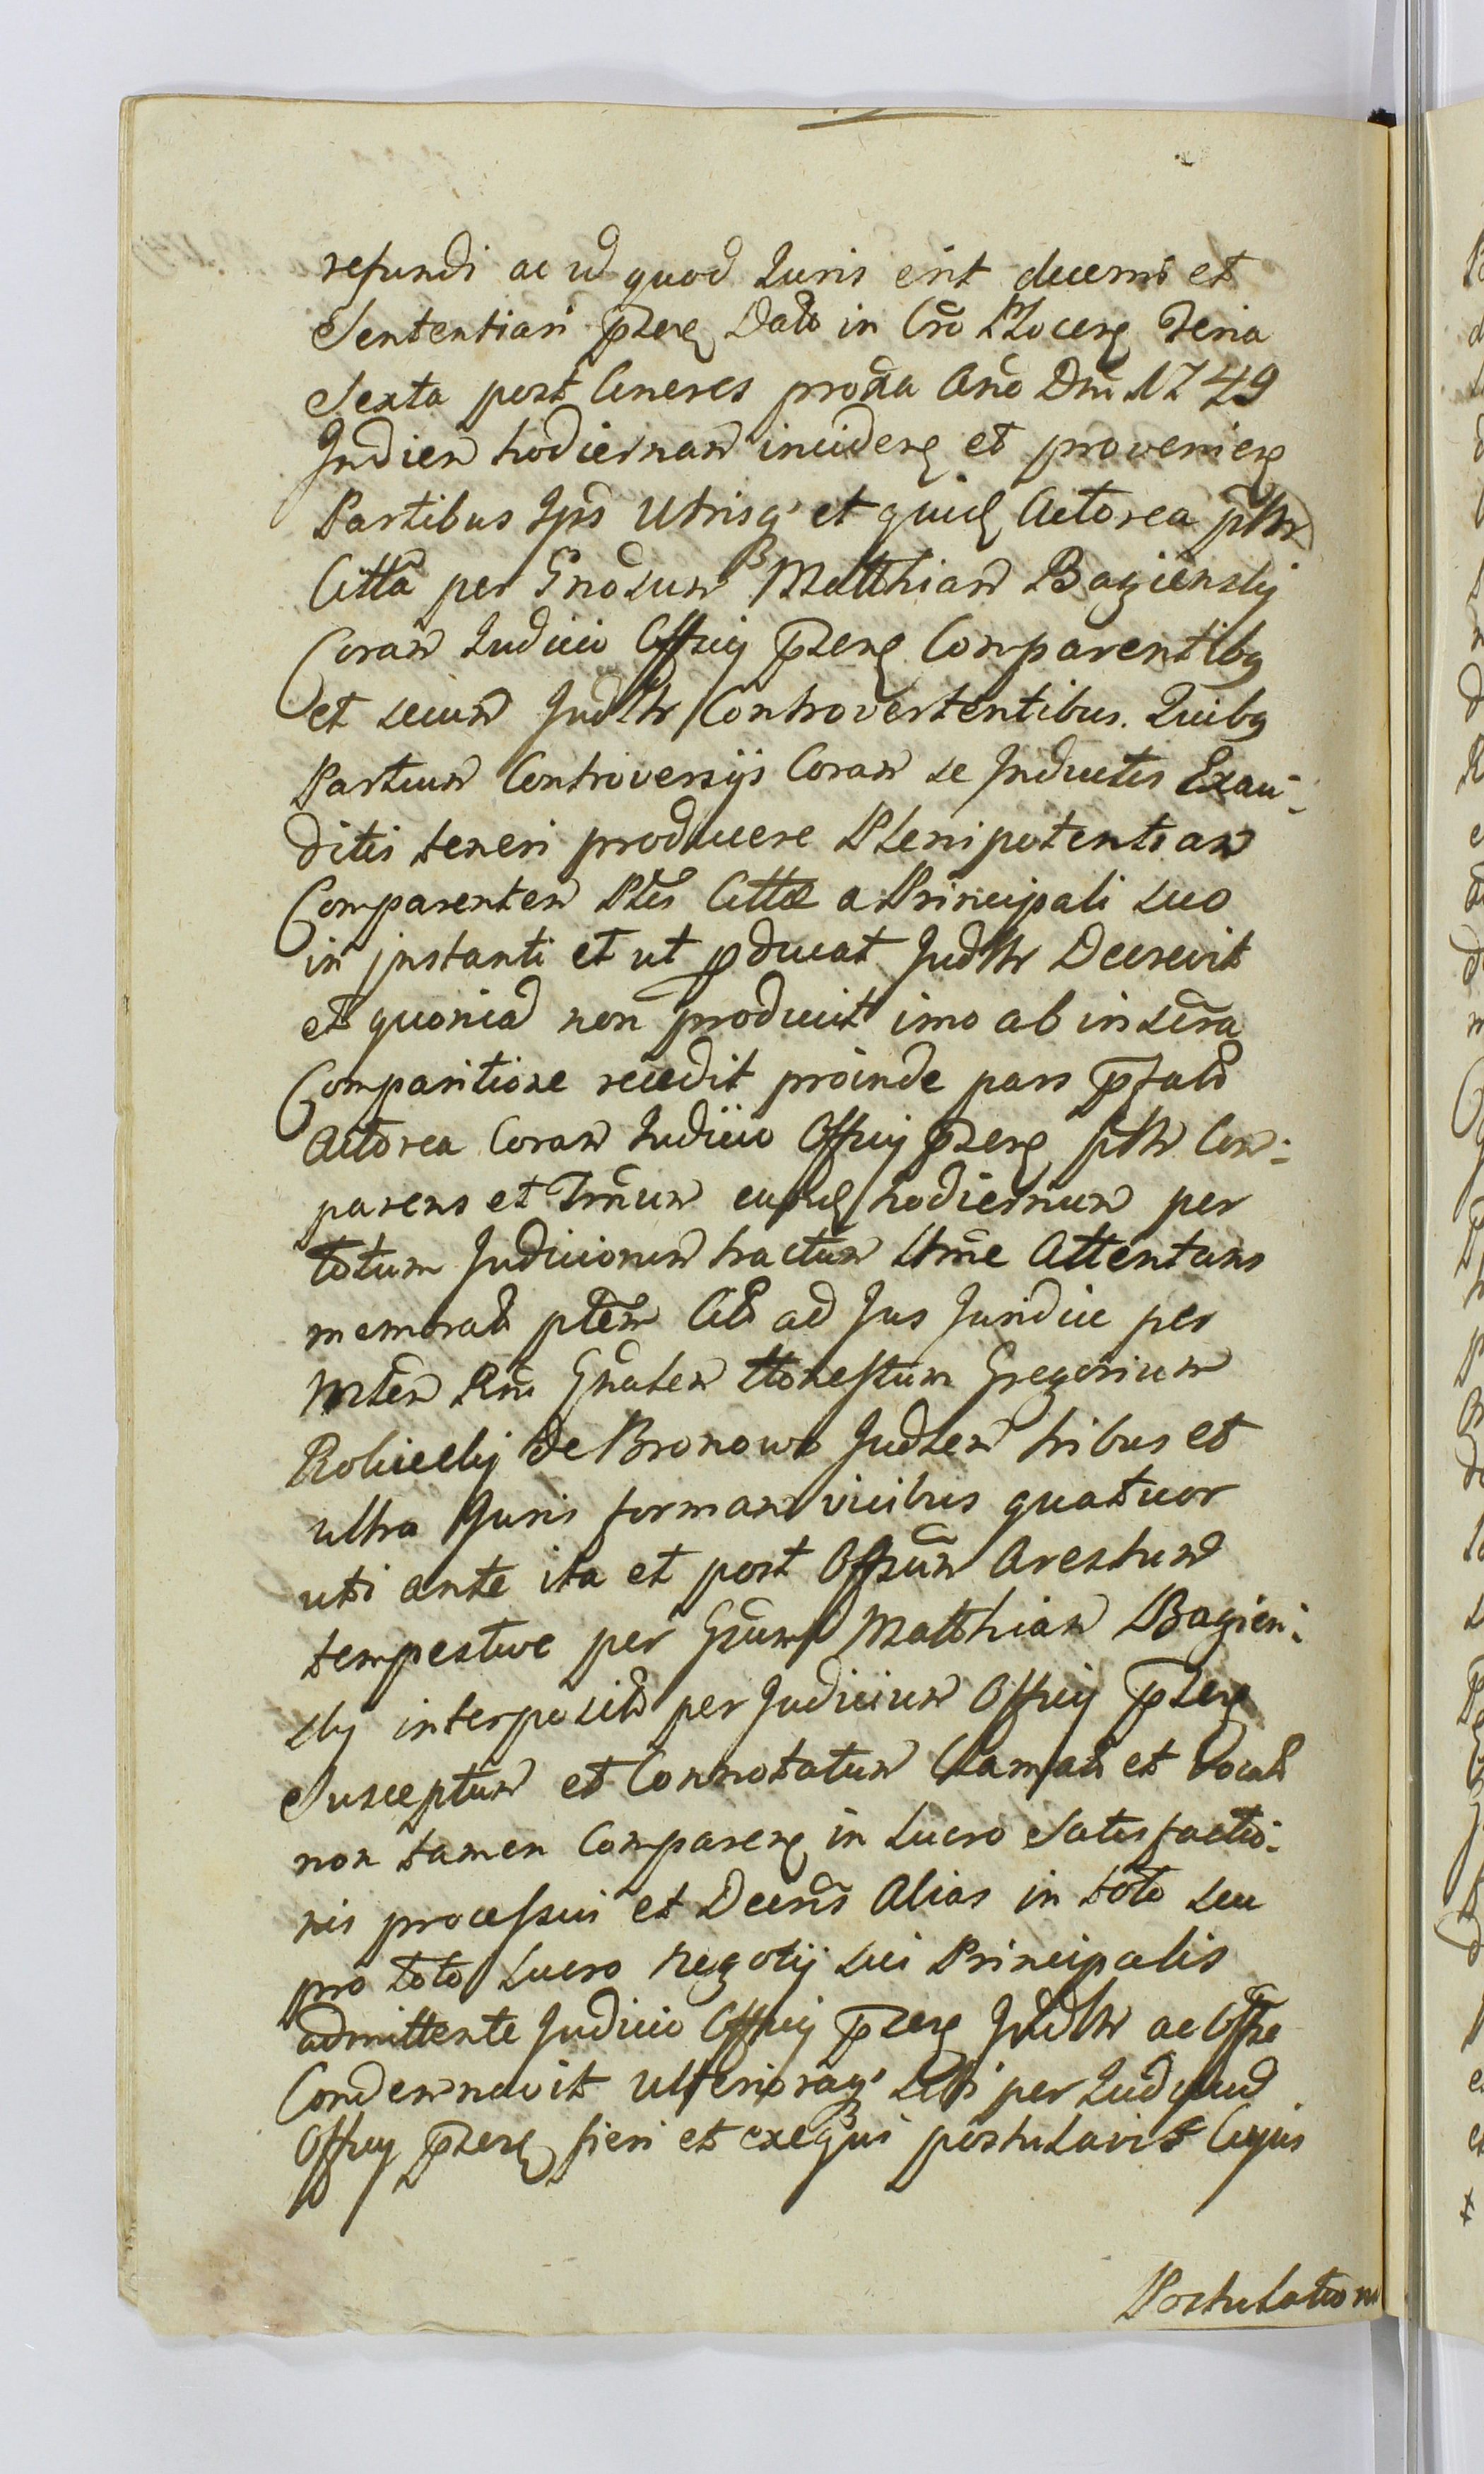 refundi ac id quod Juris erit decerni et
Sententiari p̄sens Dato in Cr̄o Plocens Feria
Sexta post Cineres prox̄a An̄o Dn̄i 1749
In diem hodiernam inciden et provenien
Partibus Ip̄is Utrisq' et quid Actorea p̄ltr
Citt̄a per Gn̄osum Matthiam Bagienskij
Coram Judicio Officij p̄sens Comparentibq
et secum Judltr Controvertentibus. Quibq
Partium Controversijs Coram se Inductis Exau-
ditis teneri producere Plenipotentiam
Comparentem Ptis Cittæ a Principali suo
in instanti et ut pducat Judltr Decrevit
et quoniam non produxit imo ab
Comparitione recedit proinde pars p̄fato
Actorea Coram Judicio Officij p̄sens pltr Com-
parens et Tm̄inum hodiernum per
totum Judiciorum tractum Ltm̄e Attentans
memorat ptem Cit ad Jus Juridice per
Mtem Rn̄i Gn̄alem Honestum Gregorium
Robicelij de Bronowo Judlem tribus et
ultra Juris formam vicibus quatuor
uti ante ita et post Offsum Arestum
tempestive per Gsum Matthiam Bagien-
skij interposit per Judicium Officij p̄sens
Susceptum et Connotatum Clamat et Vocat
non tamen Comparen in Lucro Satisfactio-
nis processui et Decris Alias in toto seu
pro toto Lucro negotij sui Principalis
admittente Judicio Officij p̄sens Judltr ac Offse
Condemnavit ulterioraq' sibi per Judicium
Officij p̄sens fieri et exequi postulavit Cujus
Postulationi